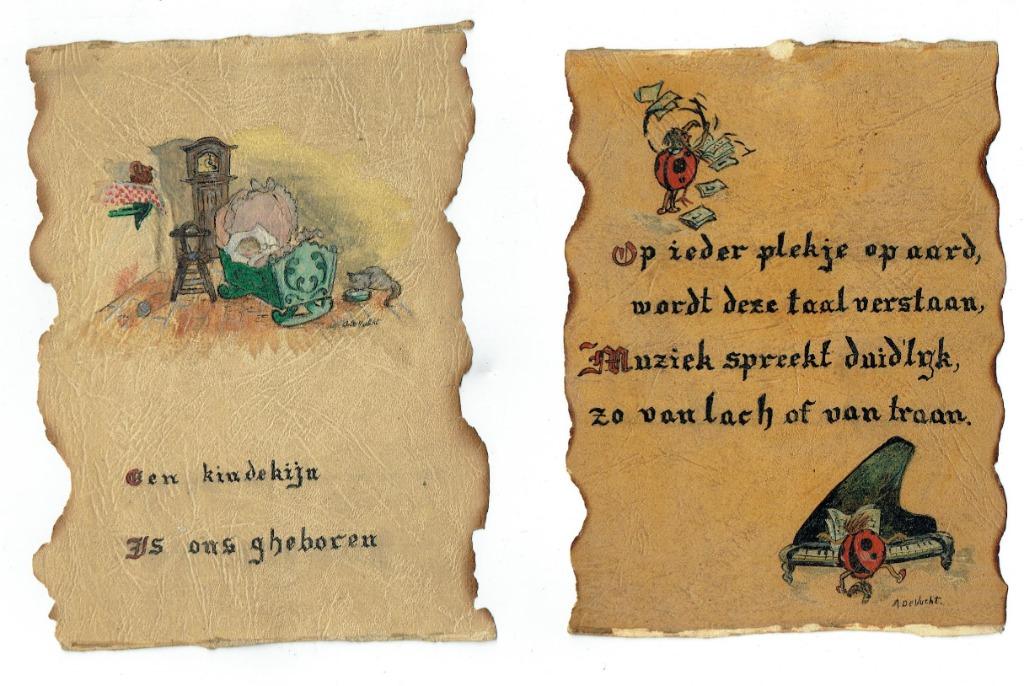 Een kindekijn
Is ons gheboren
Op ieder plekje op aard,
wordt deze taal verstaan,
Muziek spreekt duid'lijk,
zo van lach of van traan.
A. De Vucht.